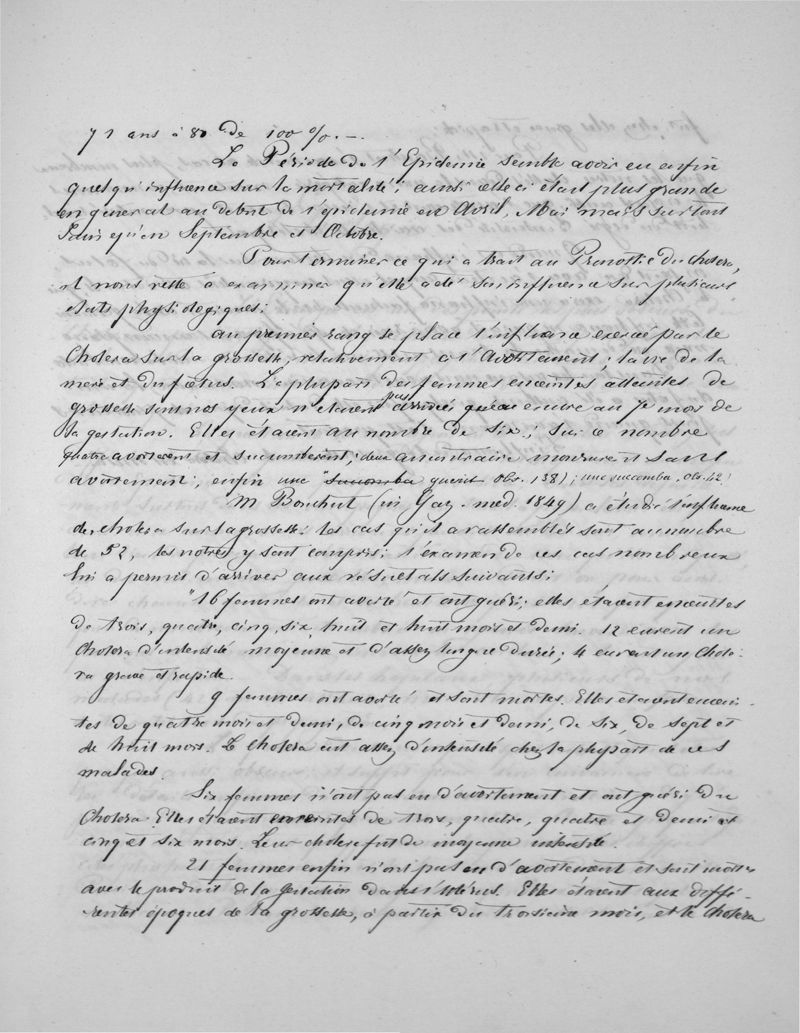 71 ans à 80 de 100 %. —
La Période de l'Epidemie semble avoir eu enfin
quelqu'influence sur la mortalité; ainsi celle ci était plus grande
en général au debut de l'épidemie en Avril, Mai mais surtout
Juin qu'en Septembre et Octobre.
Pour terminer ce qui a trait au Pronostic du cholera,
il nous reste à examiner qu'elle a été son influence sur plusieurs
etats physiologiques:
au premier rang se place l'influence exercée par le
Cholera sur la grossesse, relativement à l'Avortement, la vie de la
mere et du foetus. La plupart des femmes enceintes atteintes de
grossesse sous nos yeux n'etaient pas arrivées encore au 7e mois de
la gestation. Elles étaient au nombre de six; sur ce nombre
quatre avorterent et succomberent; deux au contraire moururent sans
avortement; enfin une succomba guérit obs. 138); une succomba, obs. 42.)
M Bouchut (in Gaz. med. 1849) a étudié l'influence
de choléra sur la grossesse: les cas qu'il a rassemblés sont au nombre
de 52, les notres y sont compris; l'examen de ces cas nombreux
lui a permis d'arriver aux résultats suivants:
"16 femmes ont avorté et ont guéri; elles étaient enceintes
de trois, quatre, cinq, six, huit et huit mois et demi. 12 eurent un
Choléra d'intensité moyenne et d'assez longue durée; 4 eurent un Chole-
ra grave et rapide.
9 femmes ont avorté et sont mortes. Elles étaient encein-
tes de quatre mois et demi, de cinq mois et demi, de six, de sept et
de huit mois. Le Choléra eut assez d'intensité chez la plupart de ces
malades.
Six femmes n'ont pas eu d'avortement et ont guéri du
Choléra. Elles étaient enceintes de trois, quatre, quatre et demi et
cinq et six mois. Leur choléra fut de moyenne intensité.
21 femmes enfin n'ont pas eu d'avortement et sont mortes
avec le produit de la gestation dans l'Utérus. Elles étaient aux diffé-
rentes époques de la grossesse, à partir du troisieme mois, et le Choléra